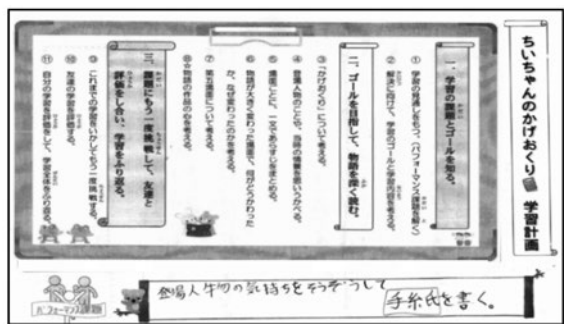 ちいちゃんのかげおくり 学習計画
一、学習の課題とゴールを知る。
① 学習の見通しをもつ。(パフォーマンス課題を解く)
② 解決に向けて、学習のゴールと学習内容を考える。
二、ゴールを目指して、物語を深く読む。
③ 「かげおくり」について考える。
④ 登場人物のことや、当時の情景を思いうかべる。
⑤ 場面ごとに、一文であらすじをまとめる。
⑥ 物語が大きく変わった場面で、何がどうかわった
か、なぜ変わったのかを考える。
⑦ 第五場面について考える。
⑧☆物語の作品の心を考える。
三、課題にもう一度挑戦して、友達と
評価をし合い、学習をふり返る。
⑨ これまでの学習をいかしてもう一度挑戦する。
⑩ 友達の学習を評価する。
⑪ 自分の学習を評価をして、学習全体をふり返る。
登場人物の気持ちをそうぞうして
手紙を書く。
パフォーマンス課題